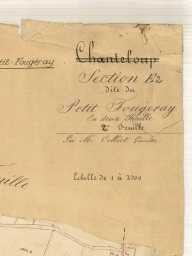 Petit Fougeray
Chanteloup
Section E2
dite du
Petit Fougeray
En deux feuilles
2e Feuille
Par Mr.
Echelle de 1 à 2500